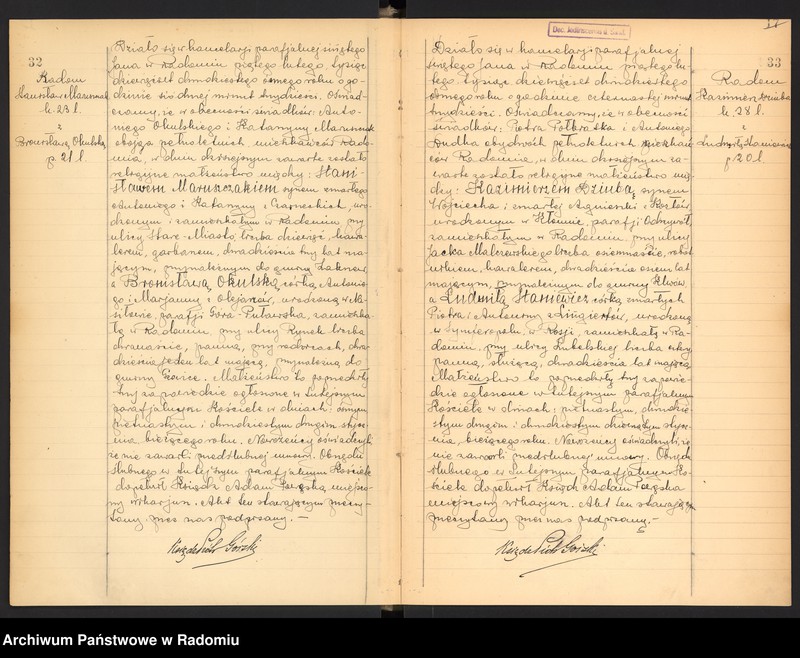 32
Radom
Stanisław Maruszczak
l. 23 l.
i
Bronisława Okulska
p. 21 l.
Działo się w kancelarji parafjalnej świętego
Jana w Radomiu piątego lutego, tysiąc
dziewięćset dwudziestego ósmego roku o go-
dzinie siódmej minut trzydzieści. Oświad-
czamy, że w obecności świadków: Anto-
niego Okulskiego i Katarzyny
obojga pełnoletnich, mieszkańców Rado-
mia, w dniu dzisiejszym zawarte zostało
religijne małżeństwo między: Stani-
sławem Maruszczakiem synem zmarłego
Antoniego i Katarzyny z Czarneckich, uro-
dzonym i zamieszkałym w Radomiu, przy
ulicy Stare-Miasto, liczba dziesięć, kawa-
lerem, garbarzem, dwadzieścia trzy lat ma-
jącym, przynależnym do gminy
a Bronisławą Okulską, córką Antonie-
go i Marjanny z urodzoną w
parafji Góra-Puławska, zamieszka-
łą w Radomiu, przy ulicy Rynek liczba
dwanaście, panną, przy rodzicach, dwa-
dzieścia jeden lat mającą, przynależną do
gminy Małżeństwo to poprzedziły
trzy zapowiedzie ogłoszone w tutejszym
parafjalnym Kościele w dniach: ósmym
piętnastym i dwudziestym drugim stycz-
nia bieżącego roku. Nowożeńcy oświadczyli
że nie zawarli przedślubnej umowy. Obrzędu
ślubnego w tutejszym parafjalnym Kościele
dopełnił Ksiądz Adam miejsco-
wy wikarjusz. Akt ten stawającym przeczy-
tany przez nas podpisany.—
Ksiądz Piotr Górski
33
Radom
Kazimierz Dziuba
k. 28 l.
i
Ludmiła Staniewicz
p 20 l.
Działo się w kancelarji parafjalnej
świętego Jana w Radomiu piątego lu-
tego, tysiąc dziewięćset dwudziestego
ósmego roku o godzinie czternastej minut
trzydzieści. Oświadczamy, że w obecności
świadków: Piotra i Antoniego
Dudka obydwóch pełnoletnich mieszkań-
ców Radomia, w dniu dzisiejszym za-
warte zostało religijne małżeństwo mię-
dzy: Kazimierzem Dziubą, synem
Wojciecha i zmarłej Agnieszki z
urodzonym w parafji Odrzywół,
zamieszkałym w Radomiu, przy ulicy
Jacka Malczewskiego liczba osiemnaście, robot-
nikiem, kawalerem, dwadzieścia osiem lat
mającym, przynależnym do gminy
a Ludmiłą Staniewicz córką zmarłych
Piotra i Antoniny z urodzoną
w Symferopolu w Rosji, zamieszkałą w Ra-
domiu, przy ulicy Lubelskiej liczba
panną, służącą, dwadzieścia lat mającą
Małżeństwo to poprzedziły trzy zapowie-
dzie ogłoszone w tutejszym parafjalnym
Kościele w dniach: piętnastym, dwudzie-
stym drugim i dwudziestym dziewiątym stycz-
nia, bieżącego roku. Nowożeńcy oświadczyli, że
nie zawarli przedślubnej umowy. Obrzędu
ślubnego w tutejszym parafjalnym Ko-
ściele dopełnił Ksiądz Adam
miejscowy wikarjusz. Akt ten stawającym
przeczytany przez nas podpisany.—
Ksiądz Piotr Górski
Archiwum Państwowe w Radomiu